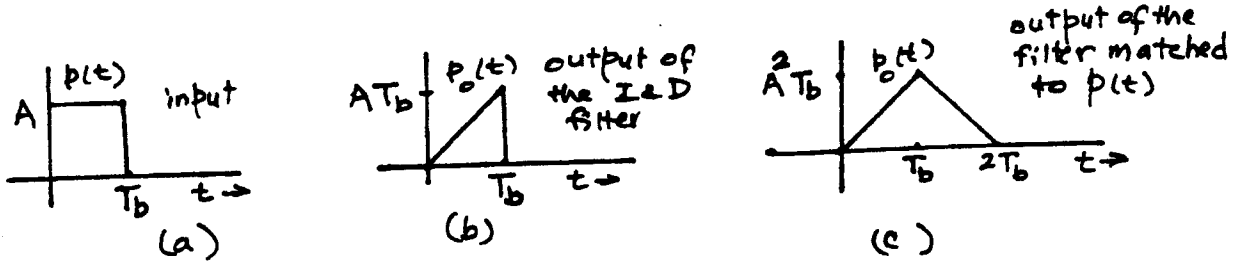 p(t)
A
input
T_b
t →
(a)
p_o(t)
output of
the I & D
filter
A T_b
T_b
t →
(b)
output of the
filter matched
to p(t)
p_o(t)
A² T_b
T_b
2T_b
t →
(c)